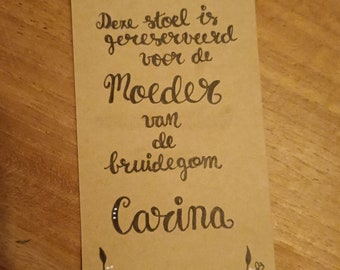 Deze stoel is
gereserveerd
voor de
Moeder
van
de
bruidegom
Carina